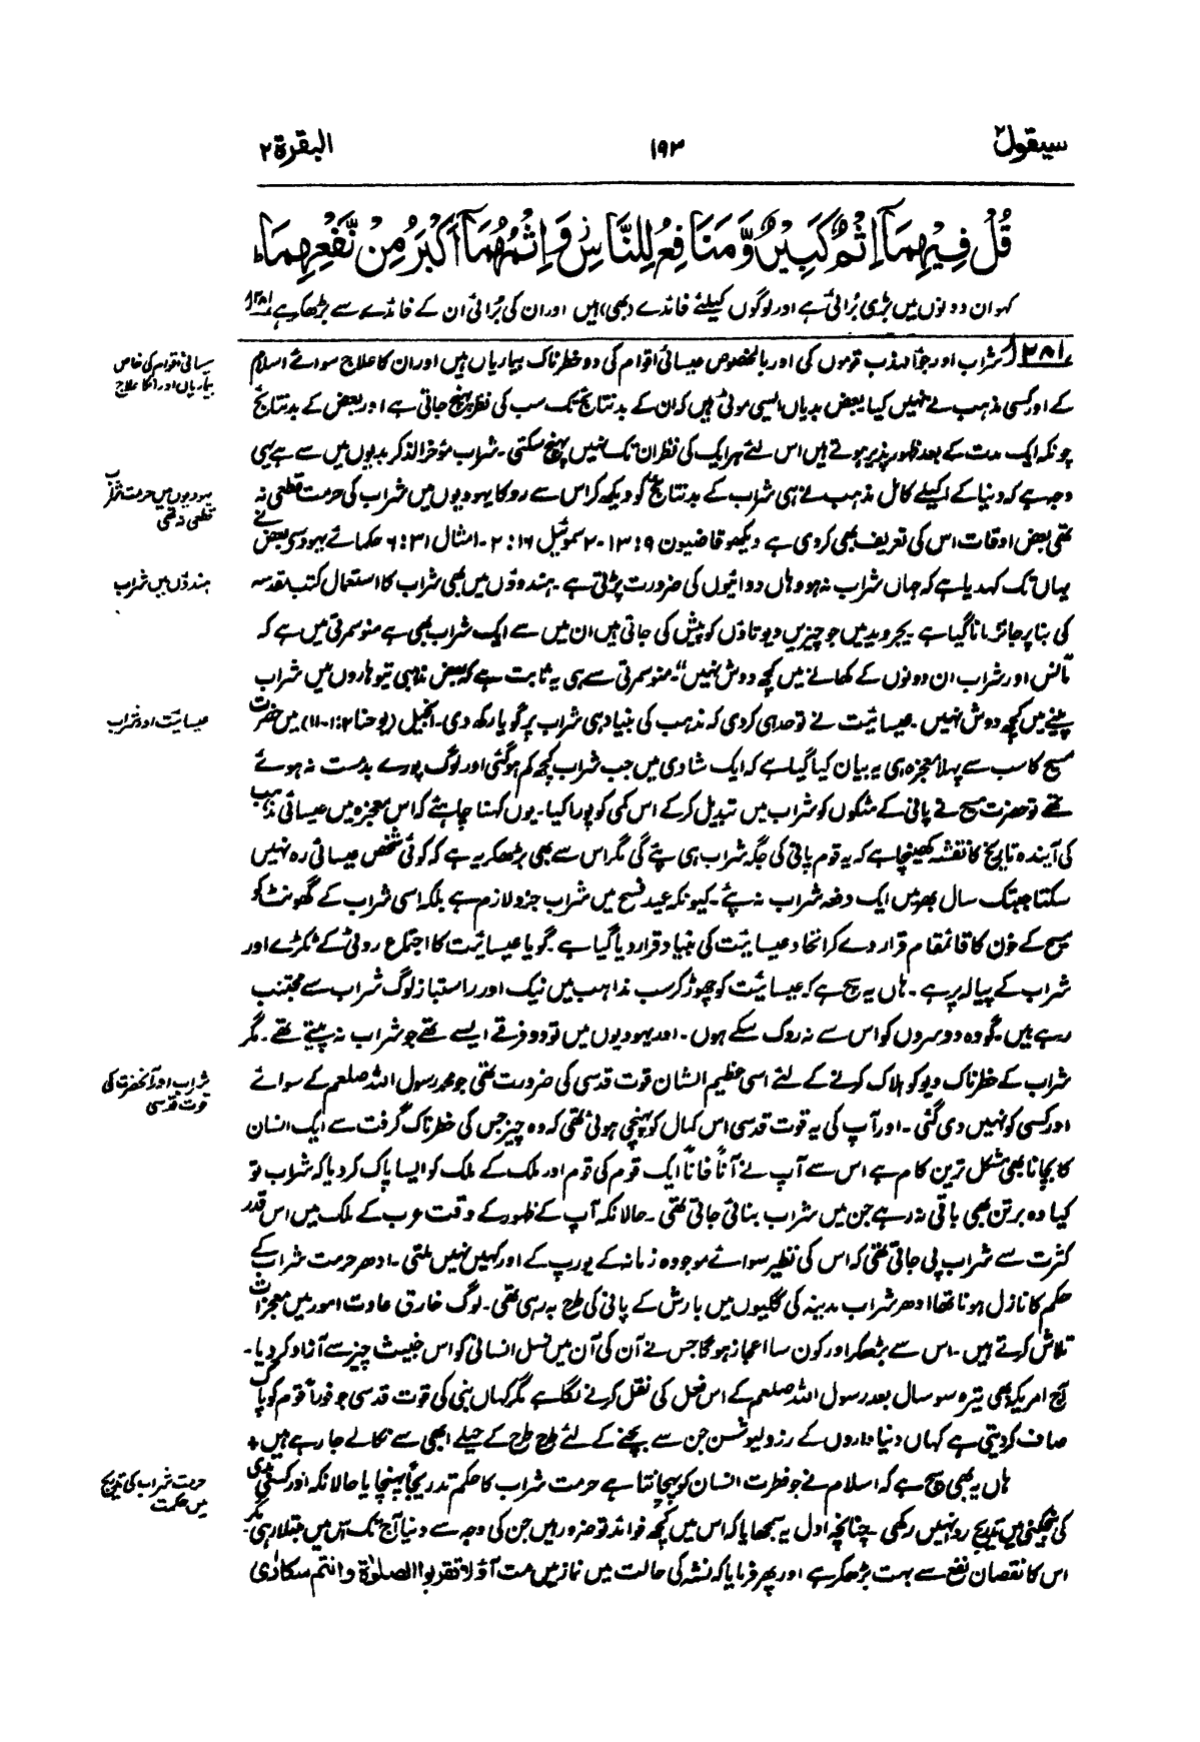 سیقول ۲
۱۹۳
البقرة ۲
قُلْ فِيْهِمَآ اِثْمٌ كَبِيْرٌ وَّمَنَافِعُ لِلنَّاسِ وَاِثْمُهُمَآ اَكْبَرُ مِنْ نَّفْعِهِمَا
کہو ان دونوں میں بڑی بُرائی ہے اور لوگوں کیلئے فائدے (بھی) ہیں اور ان کی بُرائی ان کے فائدے سے بڑھکر ہے ۲۸۱
۲۸۱ شراب اور جوا مہذب قوموں کی اور بالخصوص عیسائی اقوام کی دو خطرناک بیماریاں ہیں اور ان کا علاج سوائے اسلام
کے اور کسی مذہب نے نہیں کیا بعض بدیاں ایسی موٹی ہیں کہ ان کے بد نتائج تک سب کی نظر پہنچ جاتی ہے اور بعض کے بد نتائج
چونکہ ایک مدت کے بعد ظہور پذیر ہوتے ہیں اس لئے ہر ایک کی نظر ان تک نہیں پہنچ سکتی۔ شراب مؤخر الذکر بدیوں میں سے ہے یہی
وجہ ہے کہ دنیا کے اکیلے کامل مذہب نے ہی شراب کے بد نتائج کو دیکھ کر اس سے روکا یہودیوں میں شراب کی حرمت قطعی نہ
تھی بعض اوقات اس کی تعریف بھی کر دی ہے دیکھو قاضیون ۹:۱۳۔ ۲۔ سموئیل ۱۶:۲۔ امثال ۳۱:۶ حکمائے یہود سے بعض نے
یہاں تک کہدیا ہے کہ جہاں شراب نہ ہو وہاں دوائیوں کی ضرورت پڑتی ہے۔ ہندوؤں میں بھی شراب کا استعمال کتب مقدسہ
کی بنا پر جائز مانا گیا ہے یجروید میں جو چیزیں دیوتاؤں کو پیش کی جاتی ہیں ان میں سے ایک شراب بھی ہے منو سمرتی میں ہے کہ
"مانس اور شراب ان دونوں کے کھانے میں کچھ دوش نہیں" منو سمرتی سے ہی یہ ثابت ہے کہ بعض مذہبی تیوہاروں میں شراب
پینے میں کچھ دوش نہیں۔ عیسائیت نے تو حد ہی کر دی کہ مذہب کی بنیاد ہی شراب پر گویا رکھ دی۔ انجیل (یوحنا ۲:۱-۱۱) میں حضرت
مسیح کا سب سے پہلا معجزہ ہی یہ بیان کیا گیا ہے کہ ایک شادی میں جب شراب کچھ کم ہو گئی اور لوگ پورے بدمست نہ ہوئے
تھے تو حضرت مسیح نے پانی کے مٹکوں کو شراب میں تبدیل کرکے اس کمی کو پورا کیا۔ یوں کہنا چاہئے کہ اس معجزہ میں عیسائی مذہب
کی آیندہ تاریخ کا نقشہ کھینچا ہے کہ یہ قوم پانی کی جگہ شراب ہی پئے گی مگر اس سے بھی بڑھکر یہ ہے کہ کوئی شخص عیسائی رہ نہیں
سکتا جبتک سال بھر میں ایک دفعہ شراب نہ پئے۔ کیونکہ عید فسح میں شراب جزو لازم ہے بلکہ اسی شراب کے گھونٹ کو
مسیح کے خون کا قائمقام قرار دے کر اتحاد عیسائیت کی بنیاد قرار دیا گیا ہے۔ گویا عیسائیت کا اجتماع روٹی کے ٹکڑے اور
شراب کے پیالہ پر ہے۔ ہاں یہ سچ ہے کہ عیسائیت کو چھوڑ کر سب مذاہب میں نیک اور راستباز لوگ شراب سے مجتنب
رہے ہیں۔ گو وہ دوسروں کو اس سے نہ روک سکے ہوں۔ اور یہودیوں میں تو دو فرقے ایسے تھے جو شراب نہ پیتے تھے۔ مگر
شراب کے خطرناک دیو کو ہلاک کرنے کے لئے اسی عظیم الشان قوت قدسی کی ضرورت تھی جو محمد رسول اللہ صلعم کے سوائے
اور کسی کو نہیں دی گئی۔ اور آپ کی یہ قوت قدسی اس کمال کو پہنچی ہوئی تھی کہ وہ چیز جس کی خطرناک گرفت سے ایک انسان
کا بچانا بھی مشکل ترین کام ہے اس سے آپ نے آناً فاناً ایک قوم کی قوم اور ملک کے ملک کو ایسا پاک کر دیا کہ شراب تو
کیا وہ برتن بھی باقی نہ رہے جن میں شراب بنائی جاتی تھی۔ حالانکہ آپ کے ظہور کے وقت عرب کے ملک میں اس قدر
کثرت سے شراب پی جاتی تھی کہ اس کی نظیر سوائے موجودہ زمانہ کے یورپ کے اور کہیں نہیں ملتی۔ ادھر حرمت شراب کے
حکم کا نازل ہونا تھا ادھر شراب مدینہ کی گلیوں میں بارش کے پانی کی طرح بہ رہی تھی۔ لوگ خارق عادت امور میں معجزات
تلاش کرتے ہیں۔ اس سے بڑھکر اور کون سا اعجاز ہو گا جس نے آن کی آن میں نسل انسانی کو اس خبیث چیز سے آزاد کر دیا۔
آج امریکہ بھی تیرہ سو سال بعد رسول اللہ صلعم کے اس فعل کی نقل کرنے لگا ہے مگر کہاں نبی کی قوت قدسی جو فوراً قوم کو پاک
صاف کر دیتی ہے کہاں دنیا داروں کے رزولیوشن جن سے بچنے کے لئے طرح طرح کے حیلے ابھی سے نکالے جا رہے ہیں +
ہاں یہ بھی سچ ہے کہ اسلام نے جو فطرت انسان کو پہچانتا ہے حرمت شراب کا حکم تدریجاً پہنچایا حالانکہ اور کسی بدی
کی بیخ کنی میں تدریج روا نہیں رکھی۔ چنانچہ اول یہ سمجھایا کہ اس میں کچھ فوائد تو ضرور ہیں جن کی وجہ سے دنیا آج تک اس میں مبتلا رہی مگر
اس کا نقصان نفع سے بہت بڑھکر ہے اور پھر فرمایا کہ نشہ کی حالت میں نماز میں مت آؤ لا تقربوا الصلوٰة وانتم سکاریٰ
عیسائی اقوام کی خاص
بیماریاں اور انکا علاج
یہودیوں میں حرمت شراب
قطعی نہ تھی
ہندوؤں میں شراب
عیسائیت اور شراب
شراب اور آنحضرت کی
قوت قدسی
حرمت شراب کی تدریج
میں حکمت